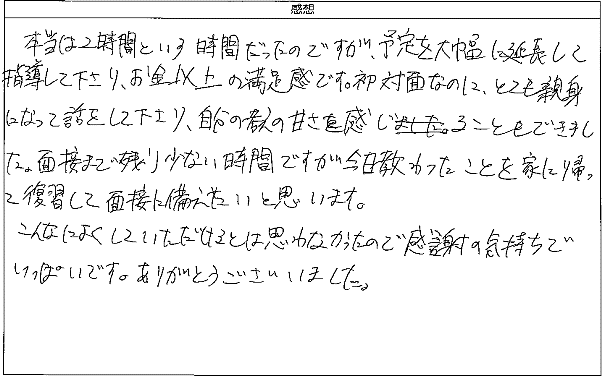 感想
本当は2時間という時間だったのですが、予定を大幅に延長して
指導して下さり、お金以上の満足感です。初対面なのに、とても親身
になって話をして下さり、自分の考えの甘さを感じました。ることもできまし
た。面接まで残り少ない時間ですが今日教わったことを家に帰っ
て復習して面接に備えたいと思います。
こんなによくしていただけるとは思わなかったので感謝の気持ちで
いっぱいです。ありがとうございました。